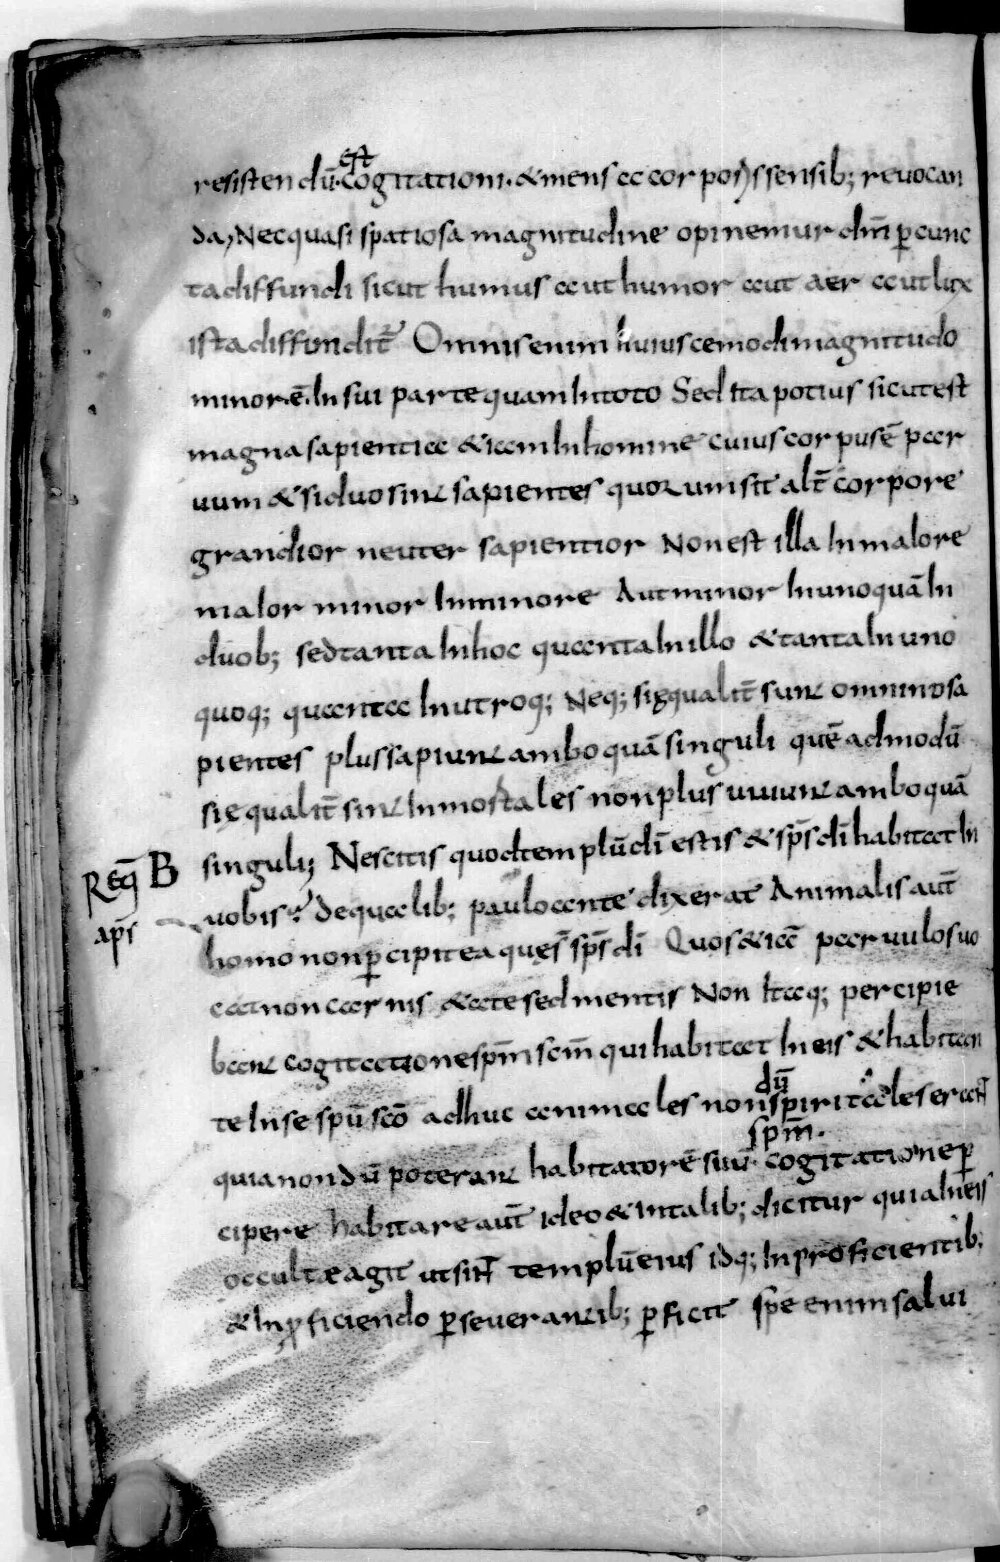 est
resistendū. cogitationi. & mens a corporis sensib; reuocan
da; Nec quasi spatiosa magnitudine opinemur dm̄ p cunc
ta diffundi sicut humus aut humor aut aer aut lux
ista diffundit̄ Omnis enim huiuscemodi magnitudo
minor ē In sui parte quam In toto Sed Ita potius sicut est
magna sapientia &iam In homine cuius corpus ē par
uum & si duo sint sapientes quorum sit alt̄ corpore
grandior neuter sapientior Non est illa In maIore
maIor minor In minore Aut minor In uno quā In
duob; sed tanta In hoc quanta In illo & tanta In uno
quoq; quanta In utroq; Neq; si ęqualit̄ sunt omnino sa
pientes plus sapiunt ambo quā singuli quē admodū
si ęqualit̄ sint Inmortales non plus uiuunt ambo quā
Req̄ B singuli; Nescitis quod templū dī estis & sp̄s dī habitat In
ap̄s uobis; De qualib; paulo ante dixerat Animalis aut̄
homo non pcipit ea quę s̄ sp̄s dī Quos &iā paruulos uo
cat non carnis &ate sed mentis Non Itaq; percipie
bant cogitatione sp̄m sc̄m qui habitat In eis & habitan
te In se spū sc̄o adhuc animales non spiritales erant
dū
sp̄m.
quia nondū poterant habitatorē suū. cogitatione p
cipere habitare aut̄ ideo & In talib; dicitur quia In eis
occulte agit ut sint templū eius idq; In proficientib;
& In pficiendo pseuerantib; pficit spe enim salui